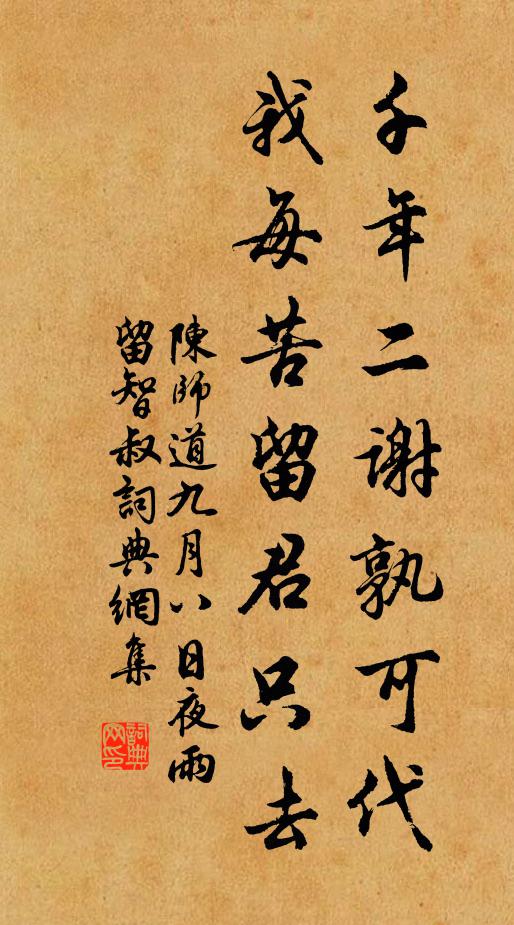 千年二謝孰可代
我每苦留君只去
陳師道九月八日夜雨
留智叔詞典網集
詞典网印